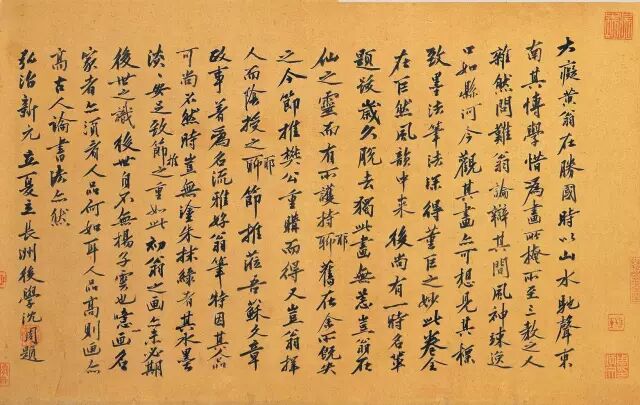 大癡黃翁在勝國時以山水馳聲東
南其博學惜為畫所掩所至三教之人
雜然問難翁論辯其間風神竦逸
口如懸河今觀其畫亦可想見其標
致墨法筆法深得董巨之妙此卷全
在巨然風韻中來後尚有一時名輩
題跋歲久脫去獨此畫無恙豈翁在
仙之靈而有所護持耶舊在余所既失
之今節推樊公重購而得又豈翁擇
人而陰授之耶節推蒞吾蘇文章
政事著為名流雅好翁筆特因其人品
可尚不然時豈無塗朱抹綠者其水墨
淡淡安足致節推之重如此初翁之画亦未必期
後世之識後世自不無楊子雲也噫画名
家者亦須看人品何如耳人品高則画亦
高古人論書法亦然
弘治新元立夏長洲後學沈周題